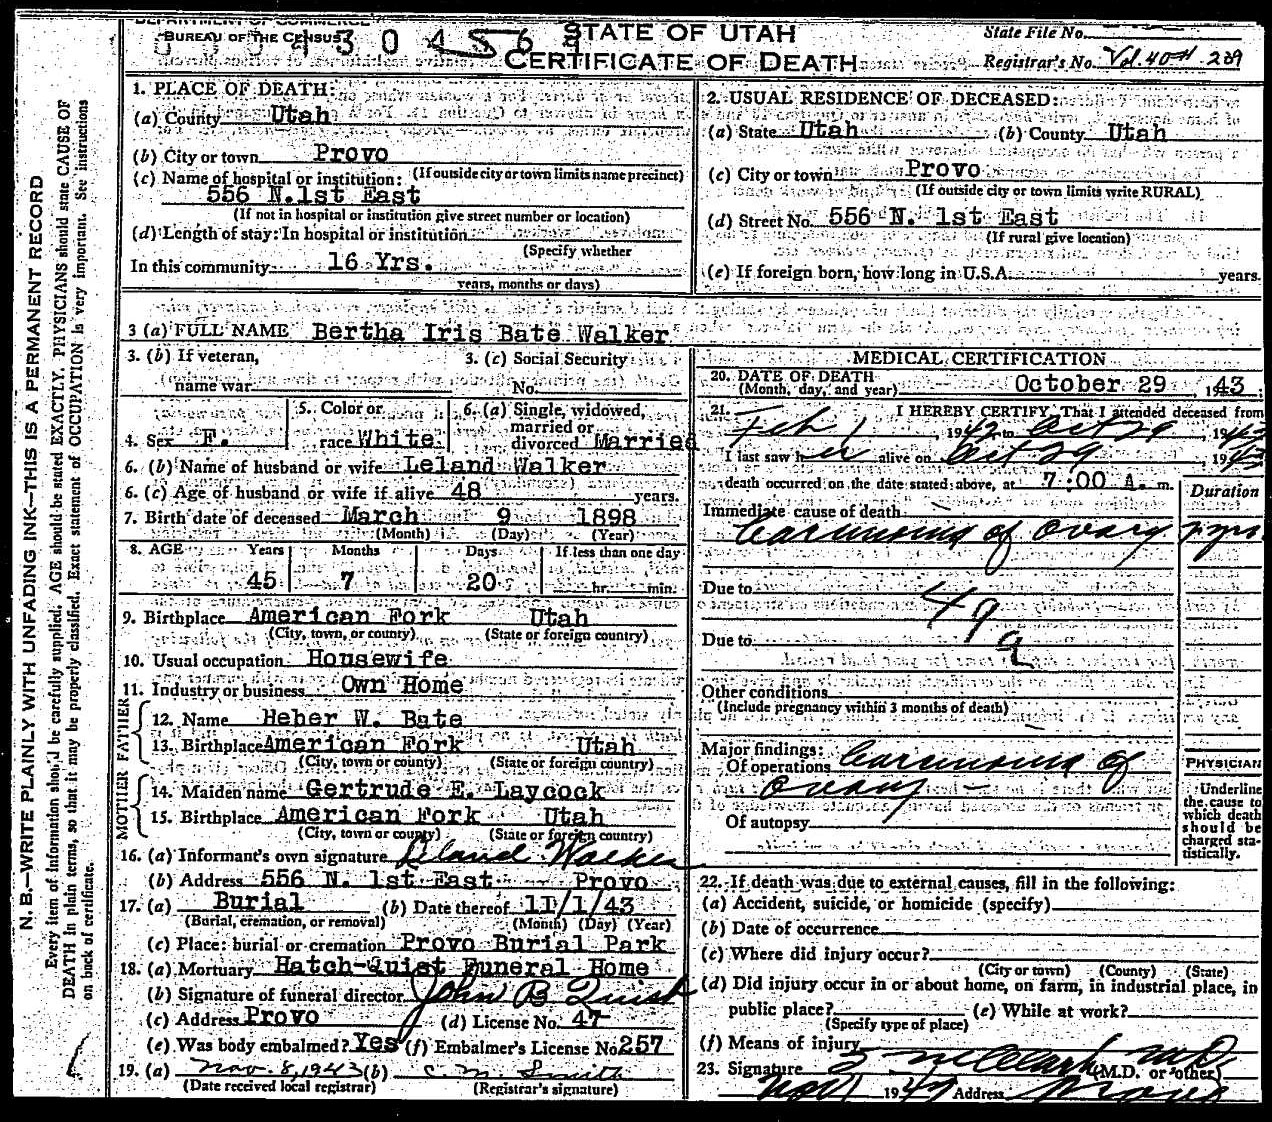 DEPARTMENT OF COMMERCE
BUREAU OF THE CENSUS
STATE OF UTAH
CERTIFICATE OF DEATH
State File No.
Registrar's No. Vol. 40
1. PLACE OF DEATH:
(a) County Utah
(b) City or town Provo
(If outside city or town limits name precinct)
(c) Name of hospital or institution:
556 N.1st East
(If not in hospital or institution give street number or location)
(d) Length of stay: In hospital or institution
(Specify whether
In this community 16 Yrs.
years, months or days)
2. USUAL RESIDENCE OF DECEASED:
(a) State Utah (b) County Utah
(c) City or town Provo
(If outside city or town limits write RURAL)
(d) Street No. 556 N. 1st East
(If rural give location)
(e) If foreign born, how long in U.S.A. years.
3 (a) FULL NAME Bertha Iris Bate Walker
3. (b) If veteran,
name war
3. (c) Social Security
No.
4. Sex F.
5. Color or
race White
6. (a) Single, widowed,
married or
divorced Married
6. (b) Name of husband or wife Leland Walker
6. (c) Age of husband or wife if alive 48 years.
7. Birth date of deceased March 9 1898
(Month) (Day) (Year)
8. AGE Years Months Days If less than one day
45 7 20 hr. min.
9. Birthplace American Fork Utah
(City, town, or county) (State or foreign country)
10. Usual occupation Housewife
11. Industry or business Own Home
FATHER
12. Name Heber W. Bate
13. Birthplace American Fork Utah
(City, town or county) (State or foreign country)
MOTHER
14. Maiden name Gertrude E. Laycock
15. Birthplace American Fork Utah
(City, town or county) (State or foreign country)
16. (a) Informant's own signature Leland Walker
(b) Address 556 N. 1st East Provo
17. (a) Burial (b) Date thereof 11/1/43
(Burial, cremation, or removal) (Month) (Day) (Year)
(c) Place: burial or cremation Provo Burial Park
18. (a) Mortuary Hatch-Quist Funeral Home
(b) Signature of funeral director John B Quist
(c) Address Provo (d) License No. 47
(e) Was body embalmed? Yes (f) Embalmer's License No 257
19. (a) Nov. 8, 1943 (b) C. M. Smith
(Date received local registrar) (Registrar's signature)
MEDICAL CERTIFICATION
20. DATE OF DEATH
(Month, day, and year) October 29, 1943
21. I HEREBY CERTIFY, That I attended deceased from
Feb 1, 1942 to Oct 29, 1943
I last saw her alive on Oct 29 1943
death occurred on the date stated above, at 7:00 A. m.
Duration
Immediate cause of death
Carcinoma of Ovary yrs.
Due to
49
Due to
a
Other conditions
(Include pregnancy within 3 months of death)
Major findings:
Of operations Carcinoma of
Ovary -
Of autopsy
PHYSICIAN
Underline
the cause to
which death
should be
charged sta-
tistically.
22. If death was due to external causes, fill in the following:
(a) Accident, suicide, or homicide (specify)
(b) Date of occurrence
(c) Where did injury occur?
(City or town) (County) (State)
(d) Did injury occur in or about home, on farm, in industrial place, in
public place? (e) While at work?
(Specify type of place)
(f) Means of injury
23. Signature M.D.
(M.D. or other)
Nov 1 19 Address Provo
N. B.—WRITE PLAINLY WITH UNFADING INK—THIS IS A PERMANENT RECORD
Every item of information should be carefully supplied. AGE should be stated EXACTLY. PHYSICIANS should state CAUSE OF
DEATH in plain terms, so that it may be properly classified. Exact statement of OCCUPATION is very important. See instructions
on back of certificate.